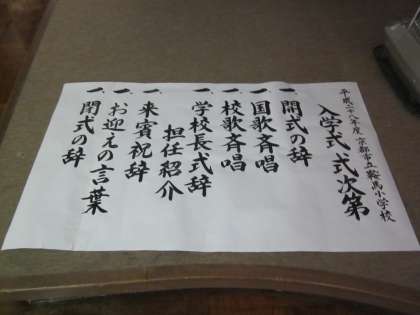 平成二十八年度 京都市立鞍馬小学校
入学式 式次第
一、開式の辞
一、国歌斉唱
一、校歌斉唱
一、学校長式辞
担任紹介
一、来賓祝辞
一、お迎えの言葉
一、閉式の辞